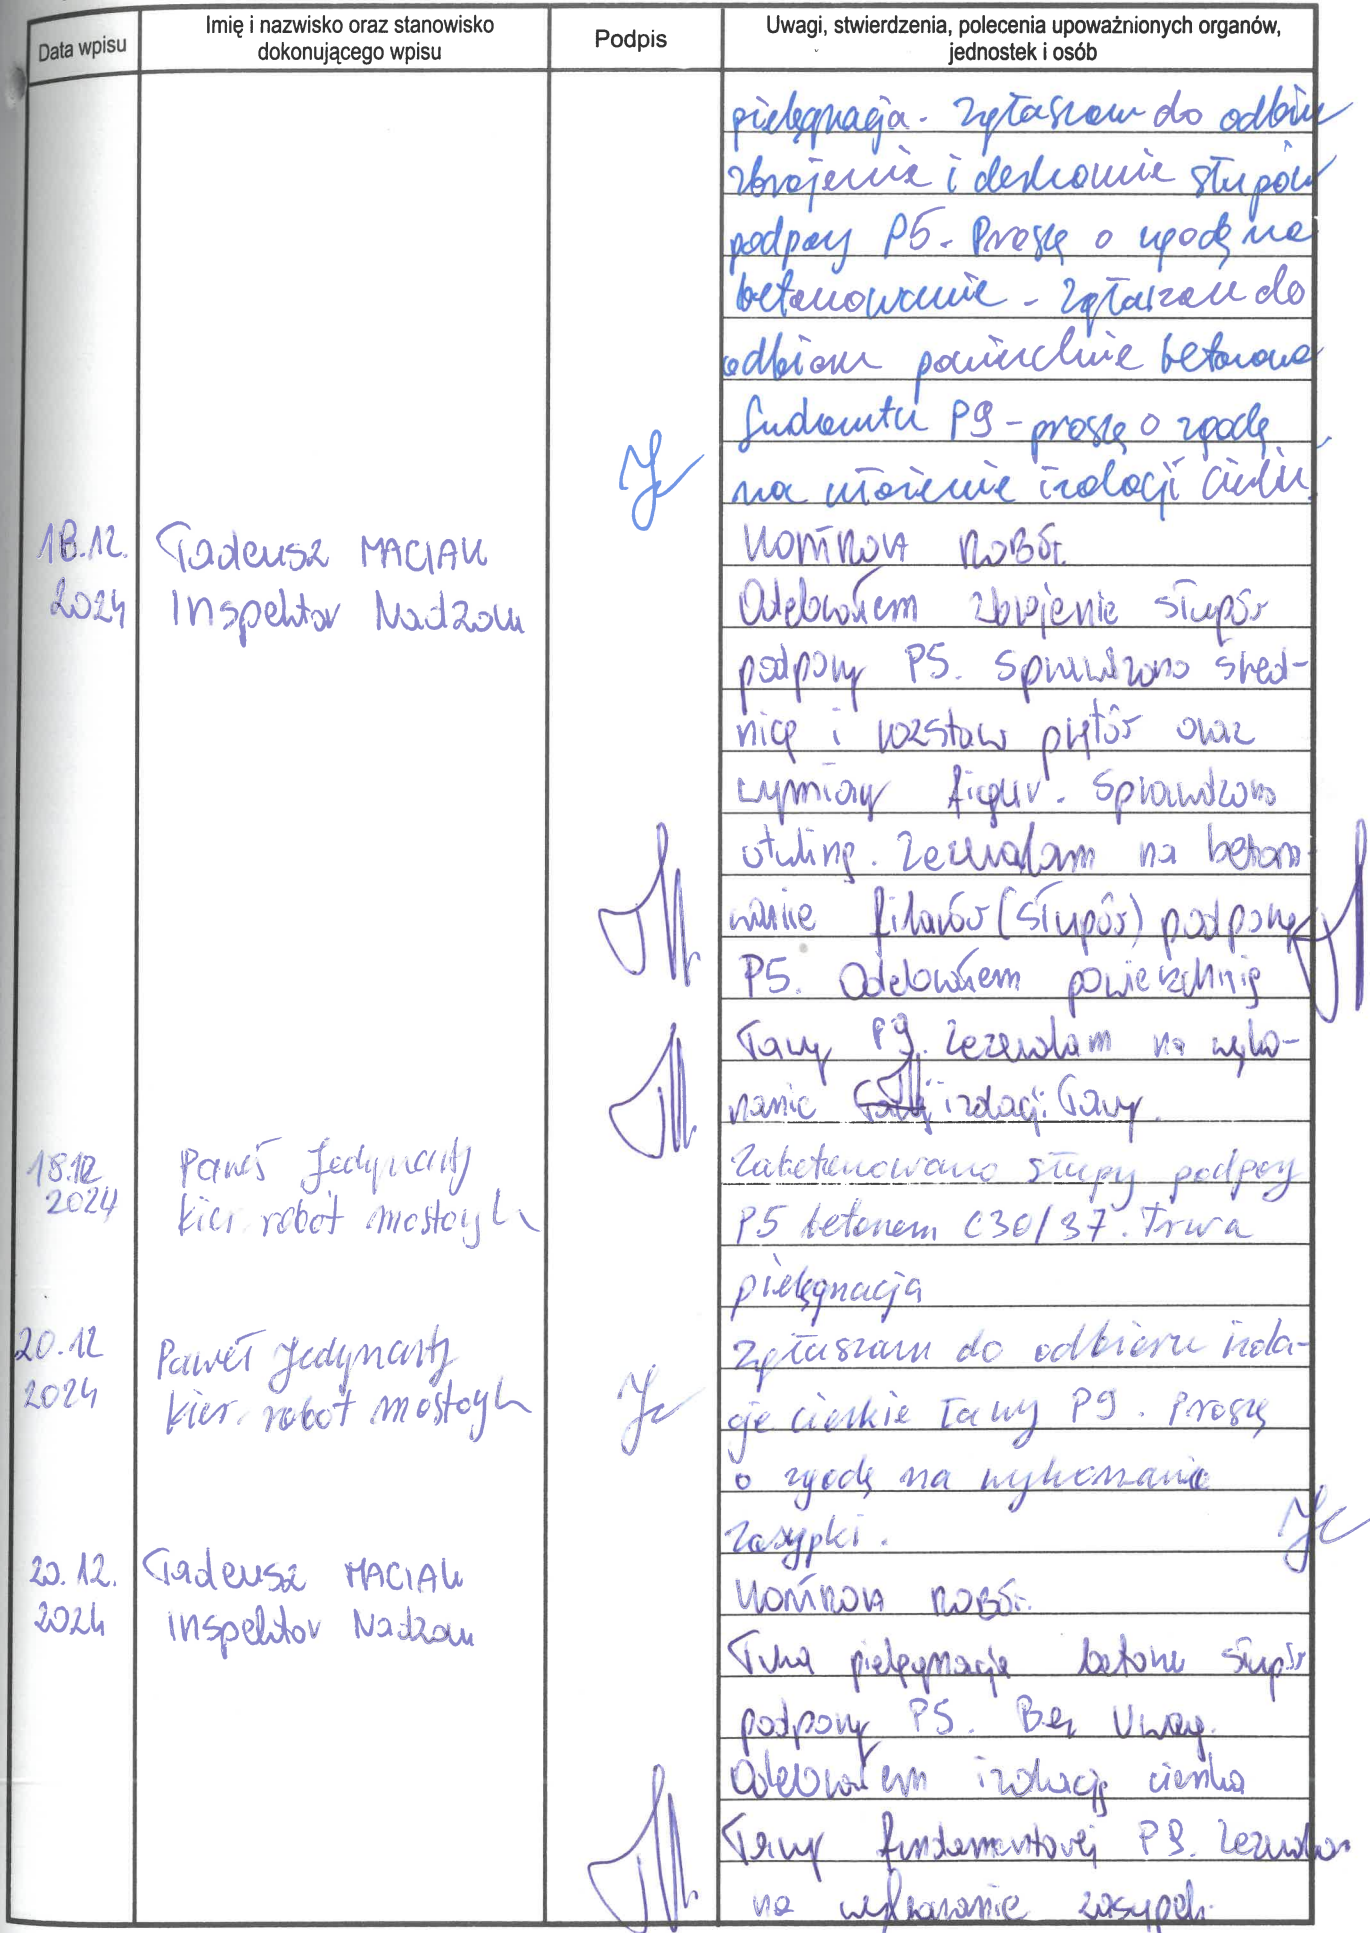 Data wpisu
Imię i nazwisko oraz stanowisko
dokonującego wpisu
Podpis
Uwagi, stwierdzenia, polecenia upoważnionych organów,
jednostek i osób
pielęgnacja. Zgłaszam do odbioru
zbrojenie i deskowanie słupów
podpory P5. Proszę o zgodę na
betonowanie - Zgłaszam do
odbioru powierzchnie betonowe
fundamentu P9 - proszę o zgodę
na ułożenie izolacji cienkiej.
18.12.
2024
Tadeusz MACIAK
Inspektor Nadzoru
KONTROLA ROBÓT.
Odebrałem zbrojenie słupów
podpory P5. Sprawdzono śred-
nicę i rozstaw prętów oraz
wymiary figur. Sprawdzono
otulinę. Zezwalam na betono-
wanie filarów (słupów) podpory
P5. Odebrałem powierzchnię
ławy P9. Zezwalam na wyko-
nanie izolacji ławy.
18.12
2024
Paweł Jedynasty
kier. robót mostowych
Zabetonowano słupy podpory
P5 betonem C30/37. Trwa
pielęgnacja
20.12
2024
Paweł Jedynasty
kier. robót mostowych
Zgłaszam do odbioru izola-
cje cienkie ławy P9. Proszę
o zgodę na wykonanie
zasypki.
20.12.
2024
Tadeusz MACIAK
Inspektor Nadzoru
KONTROLA ROBÓT.
Trwa pielęgnacja betonu słupów
podpory P5. Bez Uwag.
Odebrałem izolację cienką
ławy fundamentowej P9. Zezwalam
na wykonanie zasypek.